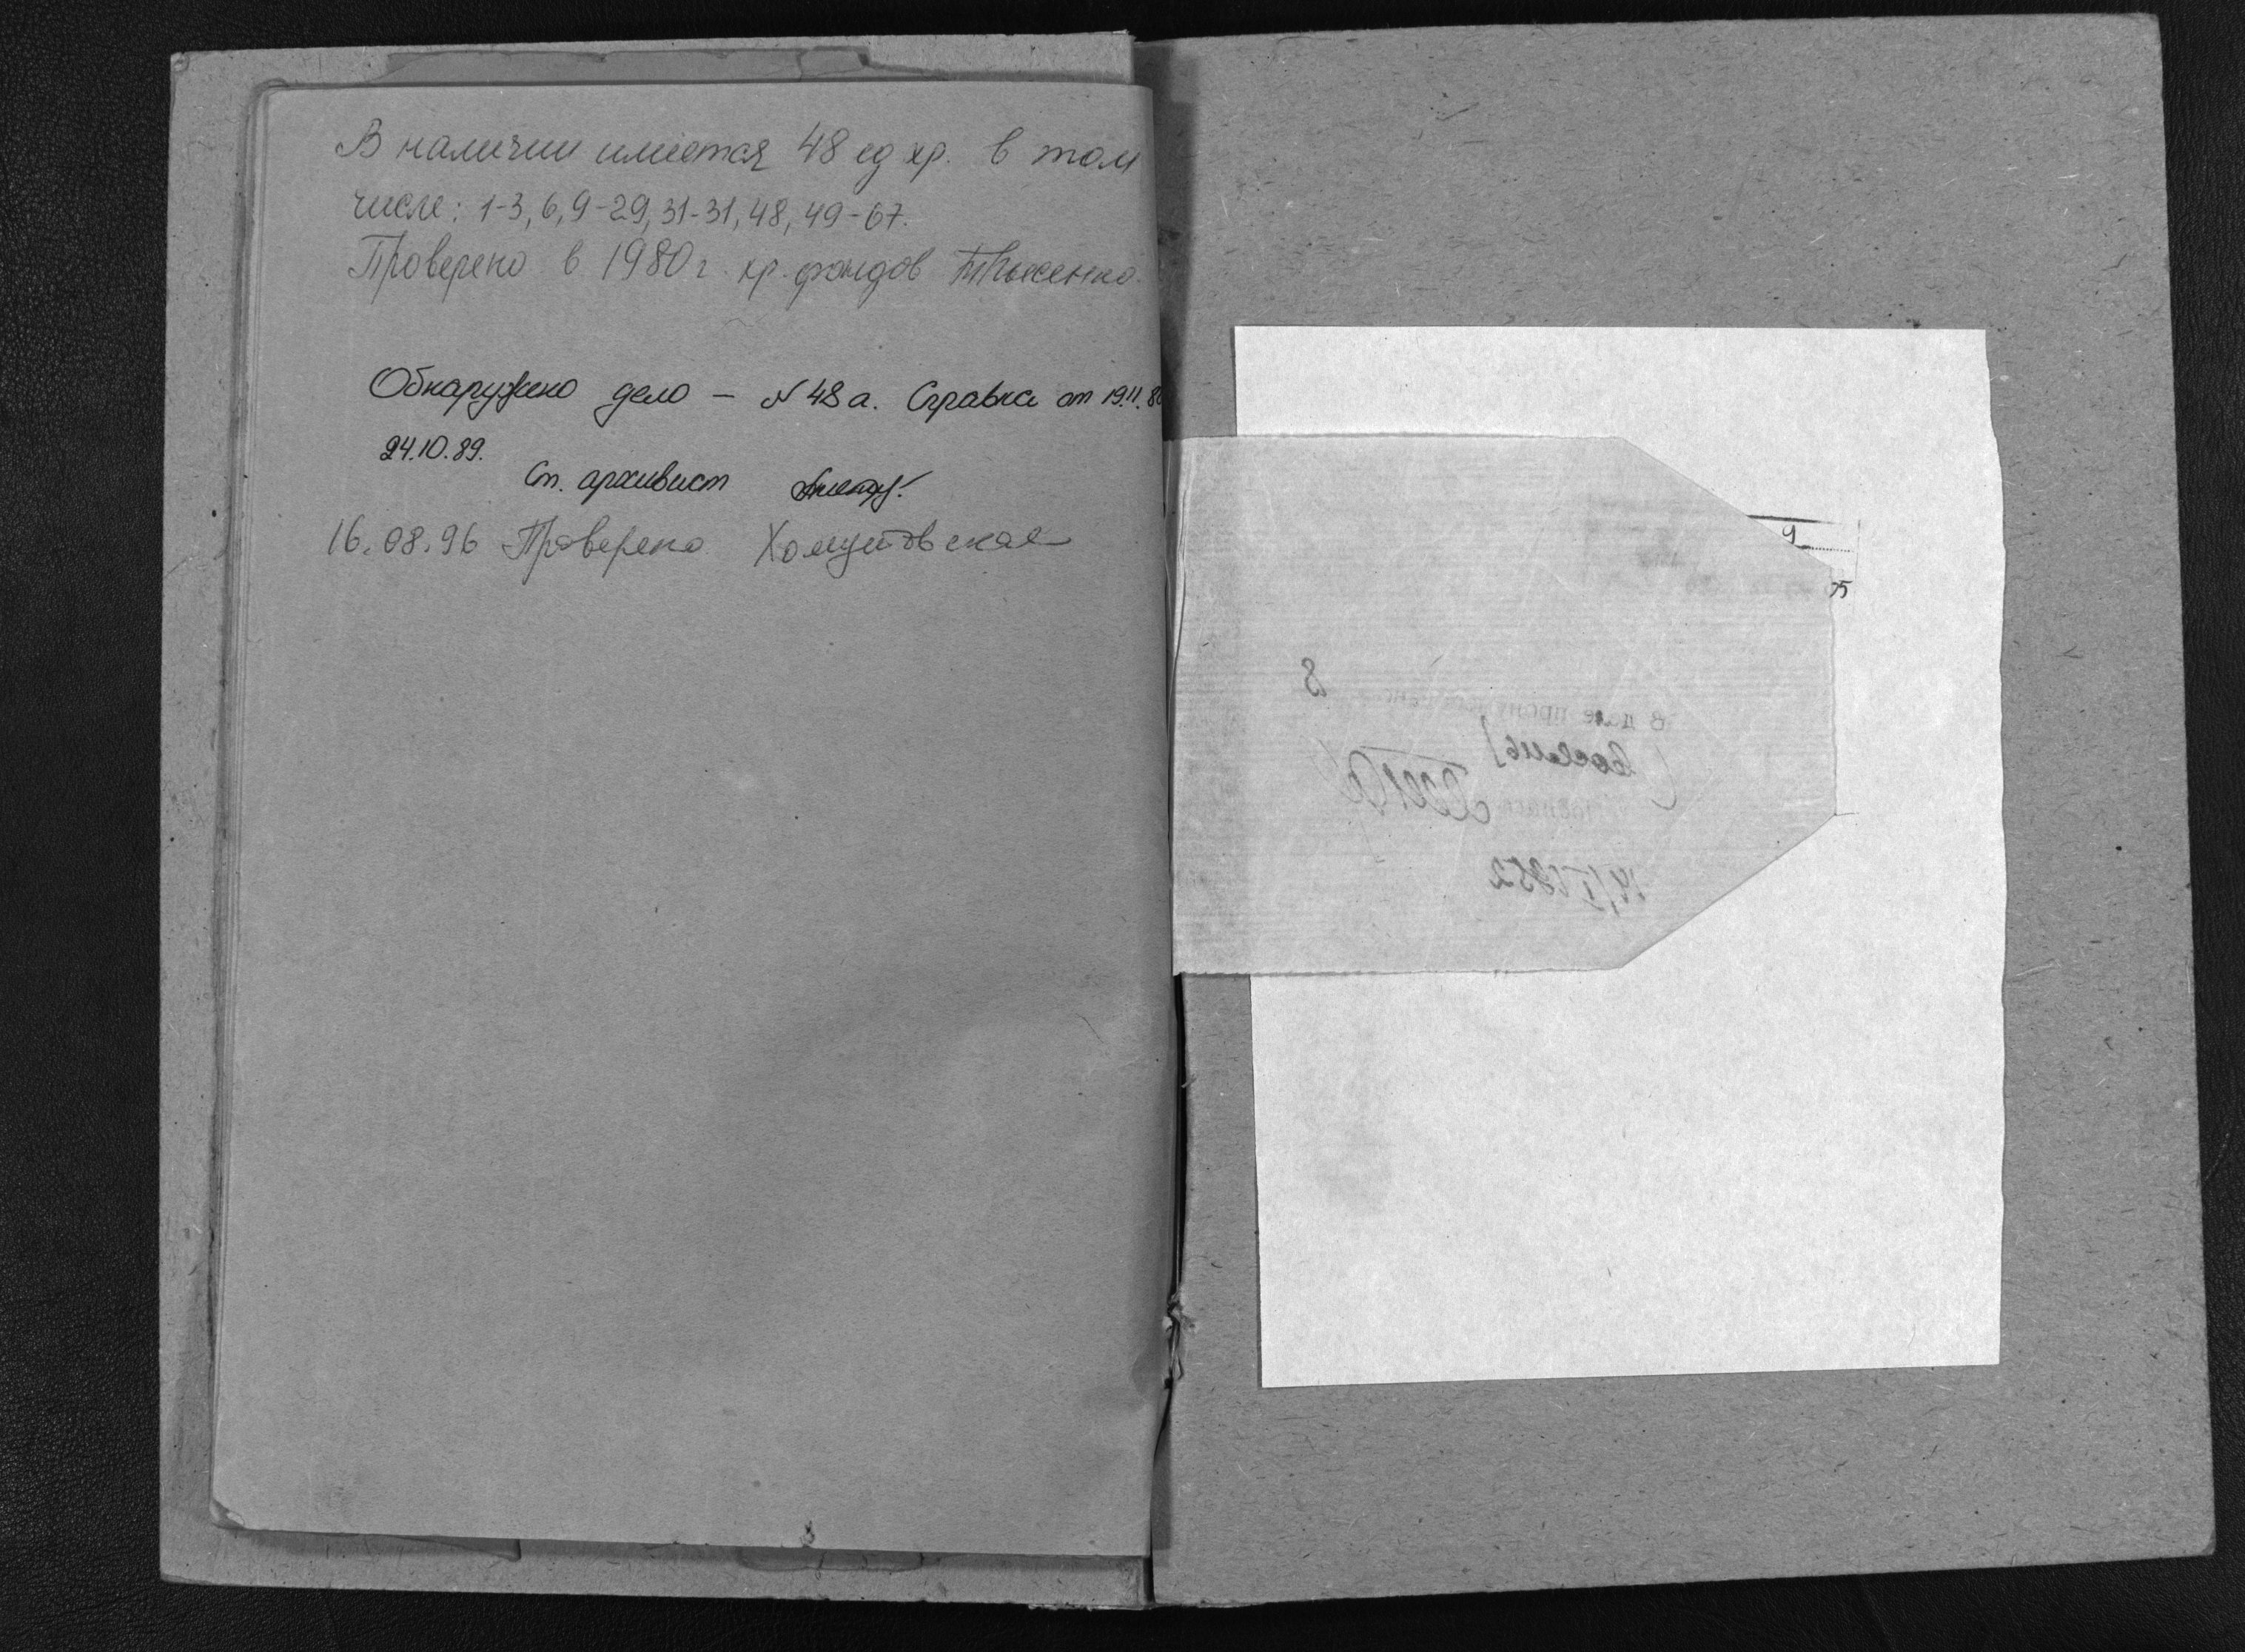 В наличии имеется 48 ед хр. в том
числе: 1-3, 6, 9-29, 31-31, 48, 49-67.
Проверено в 1980 г. хр. фондов
Обнаружено дело – N 48 а. Справка от 19.11.8
24.10.89.
Ст. архивист
16.08.96 Проверено Хомутовская
9
75
8
В деле
(восемь)
14/I 1952